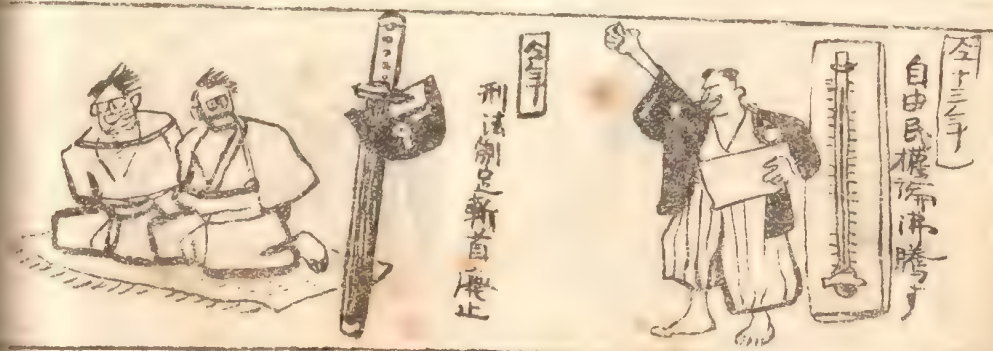 仝十三年
自由民權論沸騰す
仝年
刑法制定斬首廢止